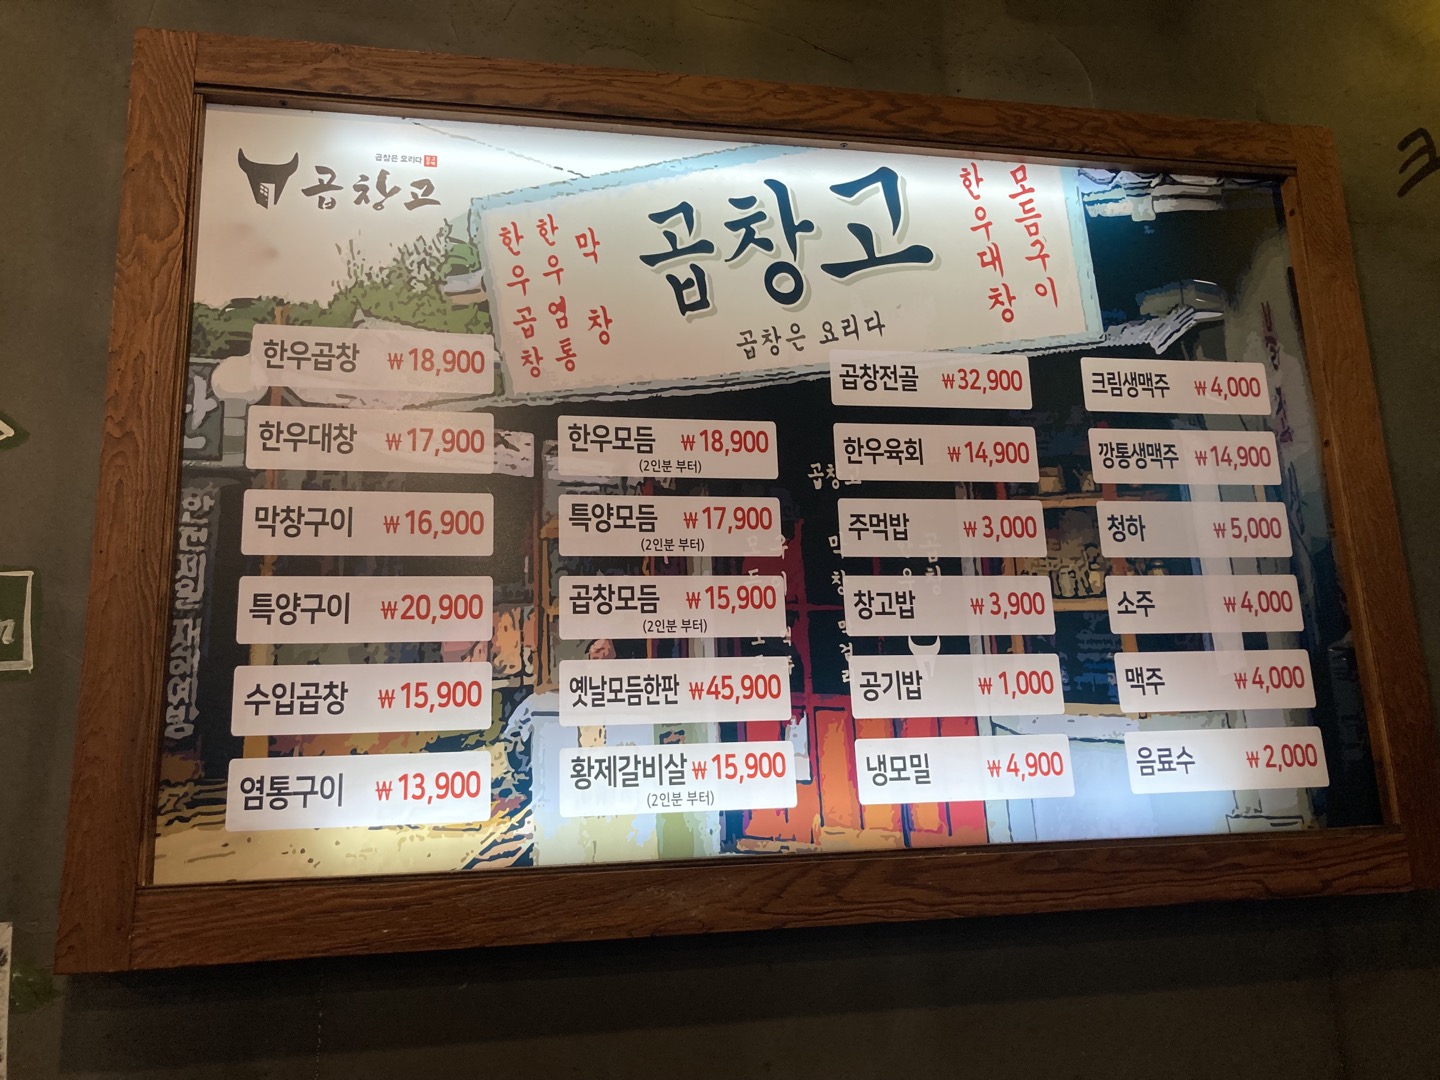 곱창은 요리다
곱창고
한우곱창
한우염통
막창
곱창고
곱창은 요리다
한우대창
모듬구이
한우곱창 ₩18,900
한우대창 ₩17,900
막창구이 ₩16,900
특양구이 ₩20,900
수입곱창 ₩15,900
염통구이 ₩13,900
한우모듬 ₩18,900
(2인분 부터)
특양모듬 ₩17,900
(2인분 부터)
곱창모듬 ₩15,900
(2인분 부터)
옛날모듬한판 ₩45,900
황제갈비살 ₩15,900
(2인분 부터)
곱창전골 ₩32,900
한우육회 ₩14,900
주먹밥 ₩3,000
창고밥 ₩3,900
공기밥 ₩1,000
냉모밀 ₩4,900
크림생맥주 ₩4,000
깡통생맥주 ₩14,900
청하 ₩5,000
소주 ₩4,000
맥주 ₩4,000
음료수 ₩2,000
곱창고